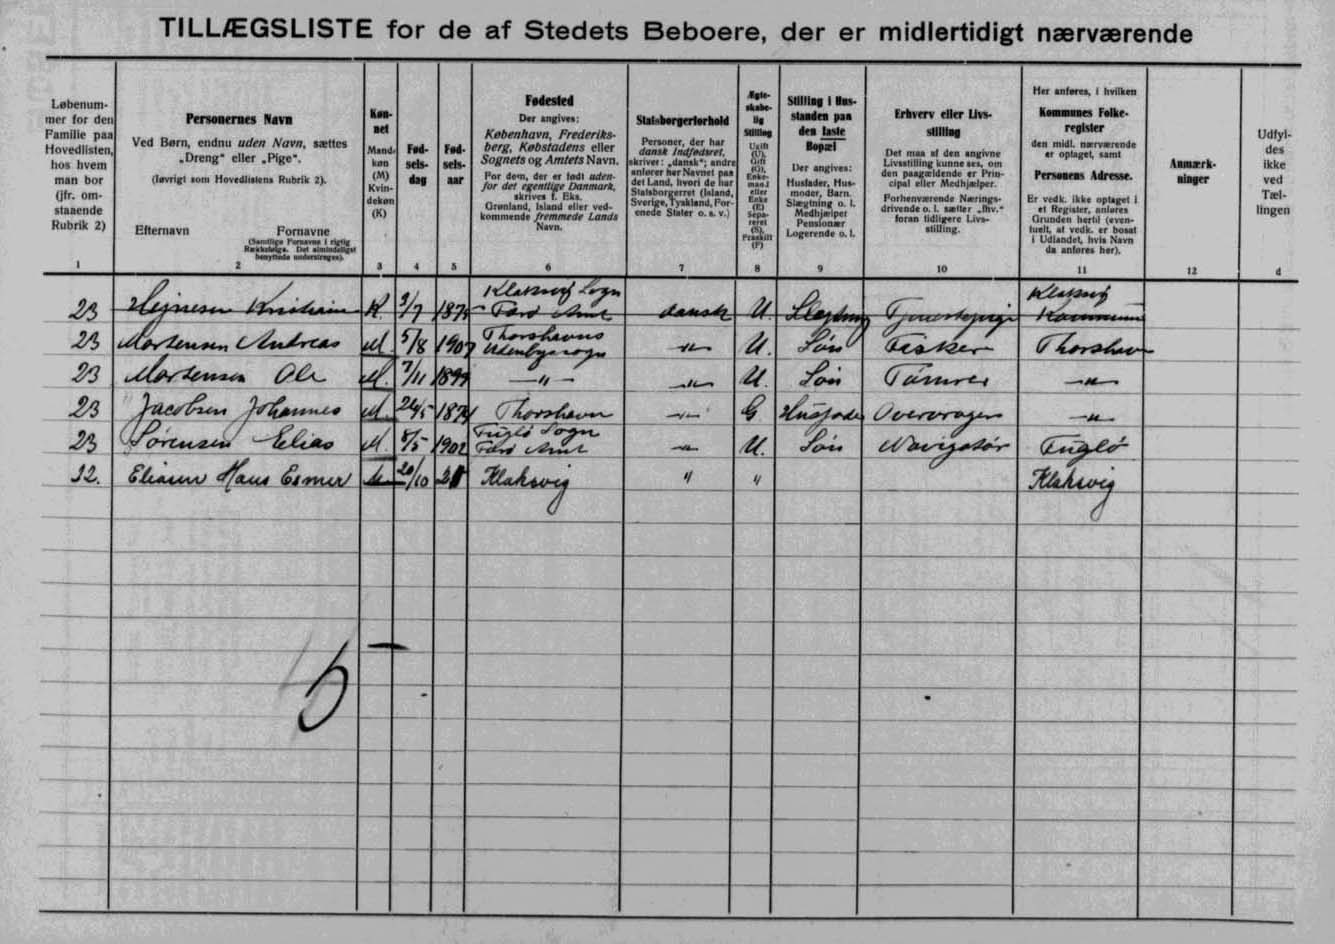 TILLÆGSLISTE for de af Stedets Beboere, der er midlertidigt nærværende
Løbenum-
mer for den
Familie paa
Hovedlisten,
hos hvem
man bor
(jfr. om-
staaende
Rubrik 2)
1
Personernes Navn
Ved Børn, endnu uden Navn, sættes
„Dreng“ eller „Pige“.
(Iøvrigt som Hovedlistens Rubrik 2).
Efternavn Fornavne
(Samtlige Fornavne i rigtig
Rækkefølge. Det almindeligst
benyttede understreges).
2
Køn-
net
Mand-
køn
(M)
Kvin-
dekøn
(K)
3
Fød-
sels-
dag
4
Fød-
sels-
aar
5
Fødested
Der angives:
København, Frederiks-
berg, Købstadens eller
Sognets og Amtets Navn.
For dem, der er født uden-
for det egentlige Danmark,
skrives f. Eks.
Grønland, Island eller ved-
kommende fremmede Lands
Navn.
6
Statsborgerforhold
Personer, der har
dansk Indfødsret,
skriver: „dansk“; andre
anfører her Navnet paa
det Land, hvori de har
Statsborgerret (Island,
Sverige, Tyskland, For-
enede Stater o. s. v.)
7
Ægte-
skabe-
lig
Stilling
Ugift
(U),
Gift
(G),
Enke-
mand
eller
Enke
(E)
Sepa-
reret
(S),
Fraskilt
(F)
8
Stilling i Hus-
standen paa
den faste
Bopæl
Der angives:
Husfader, Hus-
moder, Barn,
Slægtning o. l.
Medhjælper
Pensionær
Logerende o. l.
9
Erhverv eller Livs-
stilling
Det maa af den angivne
Livsstilling kunne ses, om
den paagældende er Prin-
cipal eller Medhjælper.
Forhenværende Nærings-
drivende o. l. sætter „fhv.“
foran tidligere Livs-
stilling.
10
Her anføres, i hvilken
Kommunes Folke-
register
den midl. nærværende
er optaget, samt
Personens Adresse.
Er vedk. ikke optaget i
et Register, anføres
Grunden hertil (even-
tuelt, at vedk. er bosat
i Udlandet, hvis Navn
da anføres her).
11
Anmærk-
ninger
12
Udfyl-
des
ikke
ved
Tæl-
lingen
d
23 Hejnesen Kristiane K. 3/7 1875 Klaksvig Sogn Færø Amt dansk U. Slægtning Tjenestepige Klaksvig Kommune
23 Mortensen Andreas M. 5/8 1907 Thorshavns Udenbyssogn " U. Søn Fisker Thorshavn
23 Mortensen Ole M. 7/11 1899 " " U. Søn Tømrer "
23 Jacobsen Johannes M. 26/5 1874 Thorshavn " G Husfader "
23 Sørensen Elias M. 5/5 1902 Fuglø Sogn Færø Amt " U. Søn Navigatør Fuglø
32. Eliasen Hans Esmer M 20/10 Klaksvig " " Klaksvig
5